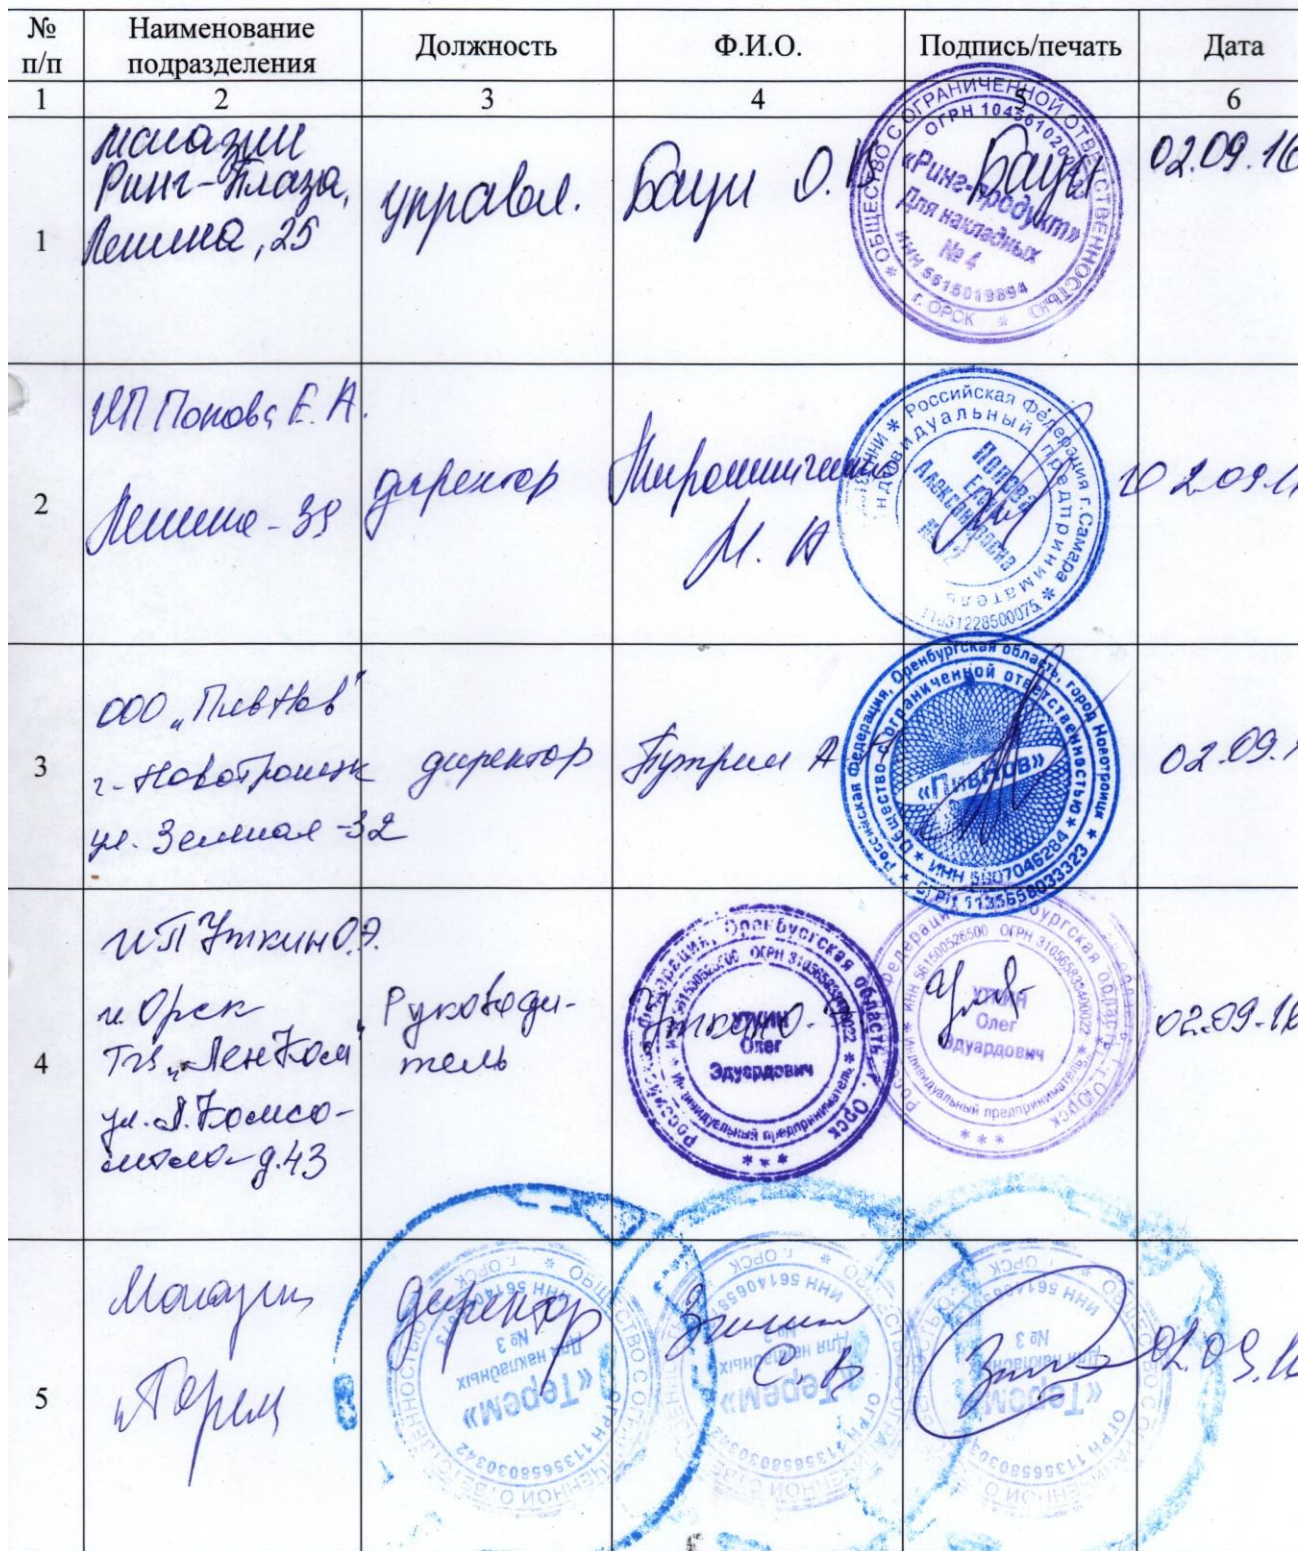 № п/п
Наименование подразделения
Должность
Ф.И.О.
Подпись/печать
Дата
1
2
3
4
5
6
1
магазин
Ринг-Плаза,
Ленина, 25
управл.
Бауи О.В
ОБЩЕСТВО С ОГРАНИЧЕННОЙ ОТВЕТСТВЕННОСТЬЮ
«Ринг-продукт»
Для накладных
№ 4
ИНН 5615019894
г. ОРСК
02.09.16
2
ИП Попова Е.А.
Ленина - 39
директор
Мирошниченко
М. А
Российская Федерация г.Самара
Индивидуальный предприниматель
Попова
Александровна
02.09.1
3
ООО „ПивНов"
г. Новотроицк
ул. Зеленая - 32
директор
Путрин А
Российская Федерация, Оренбургская область, город Новотроицк
Общество с ограниченной ответственностью
«ПивНов»
ИНН 5607046284
ОГРН 1135658033323
02.09.1
4
ИП Уткин О.Э.
г. Орск
ул. Л. Комсо-
мола д.43
Руководи-
тель
Уткин О.Э
Российская Федерация, Оренбургская область, г. Орск
Индивидуальный предприниматель
УТКИН
Олег
Эдуардович
ИНН 561500526500 ОГРН 310565834000022
УТКИН
Олег
Эдуардович
Индивидуальный предприниматель
02.09.16
5
Магазин
„Терем
директор
С. В
ОБЩЕСТВО С ОГРАНИЧЕННОЙ ОТВЕТСТВЕННОСТЬЮ
«Терем»
Для накладных
№ 3
ОГРН 1135658030342
г. ОРСК
«Терем»
Для накладных
№ 3
г. ОРСК
«Терем»
Для накладных
№ 3
г. ОРСК
02.09.16